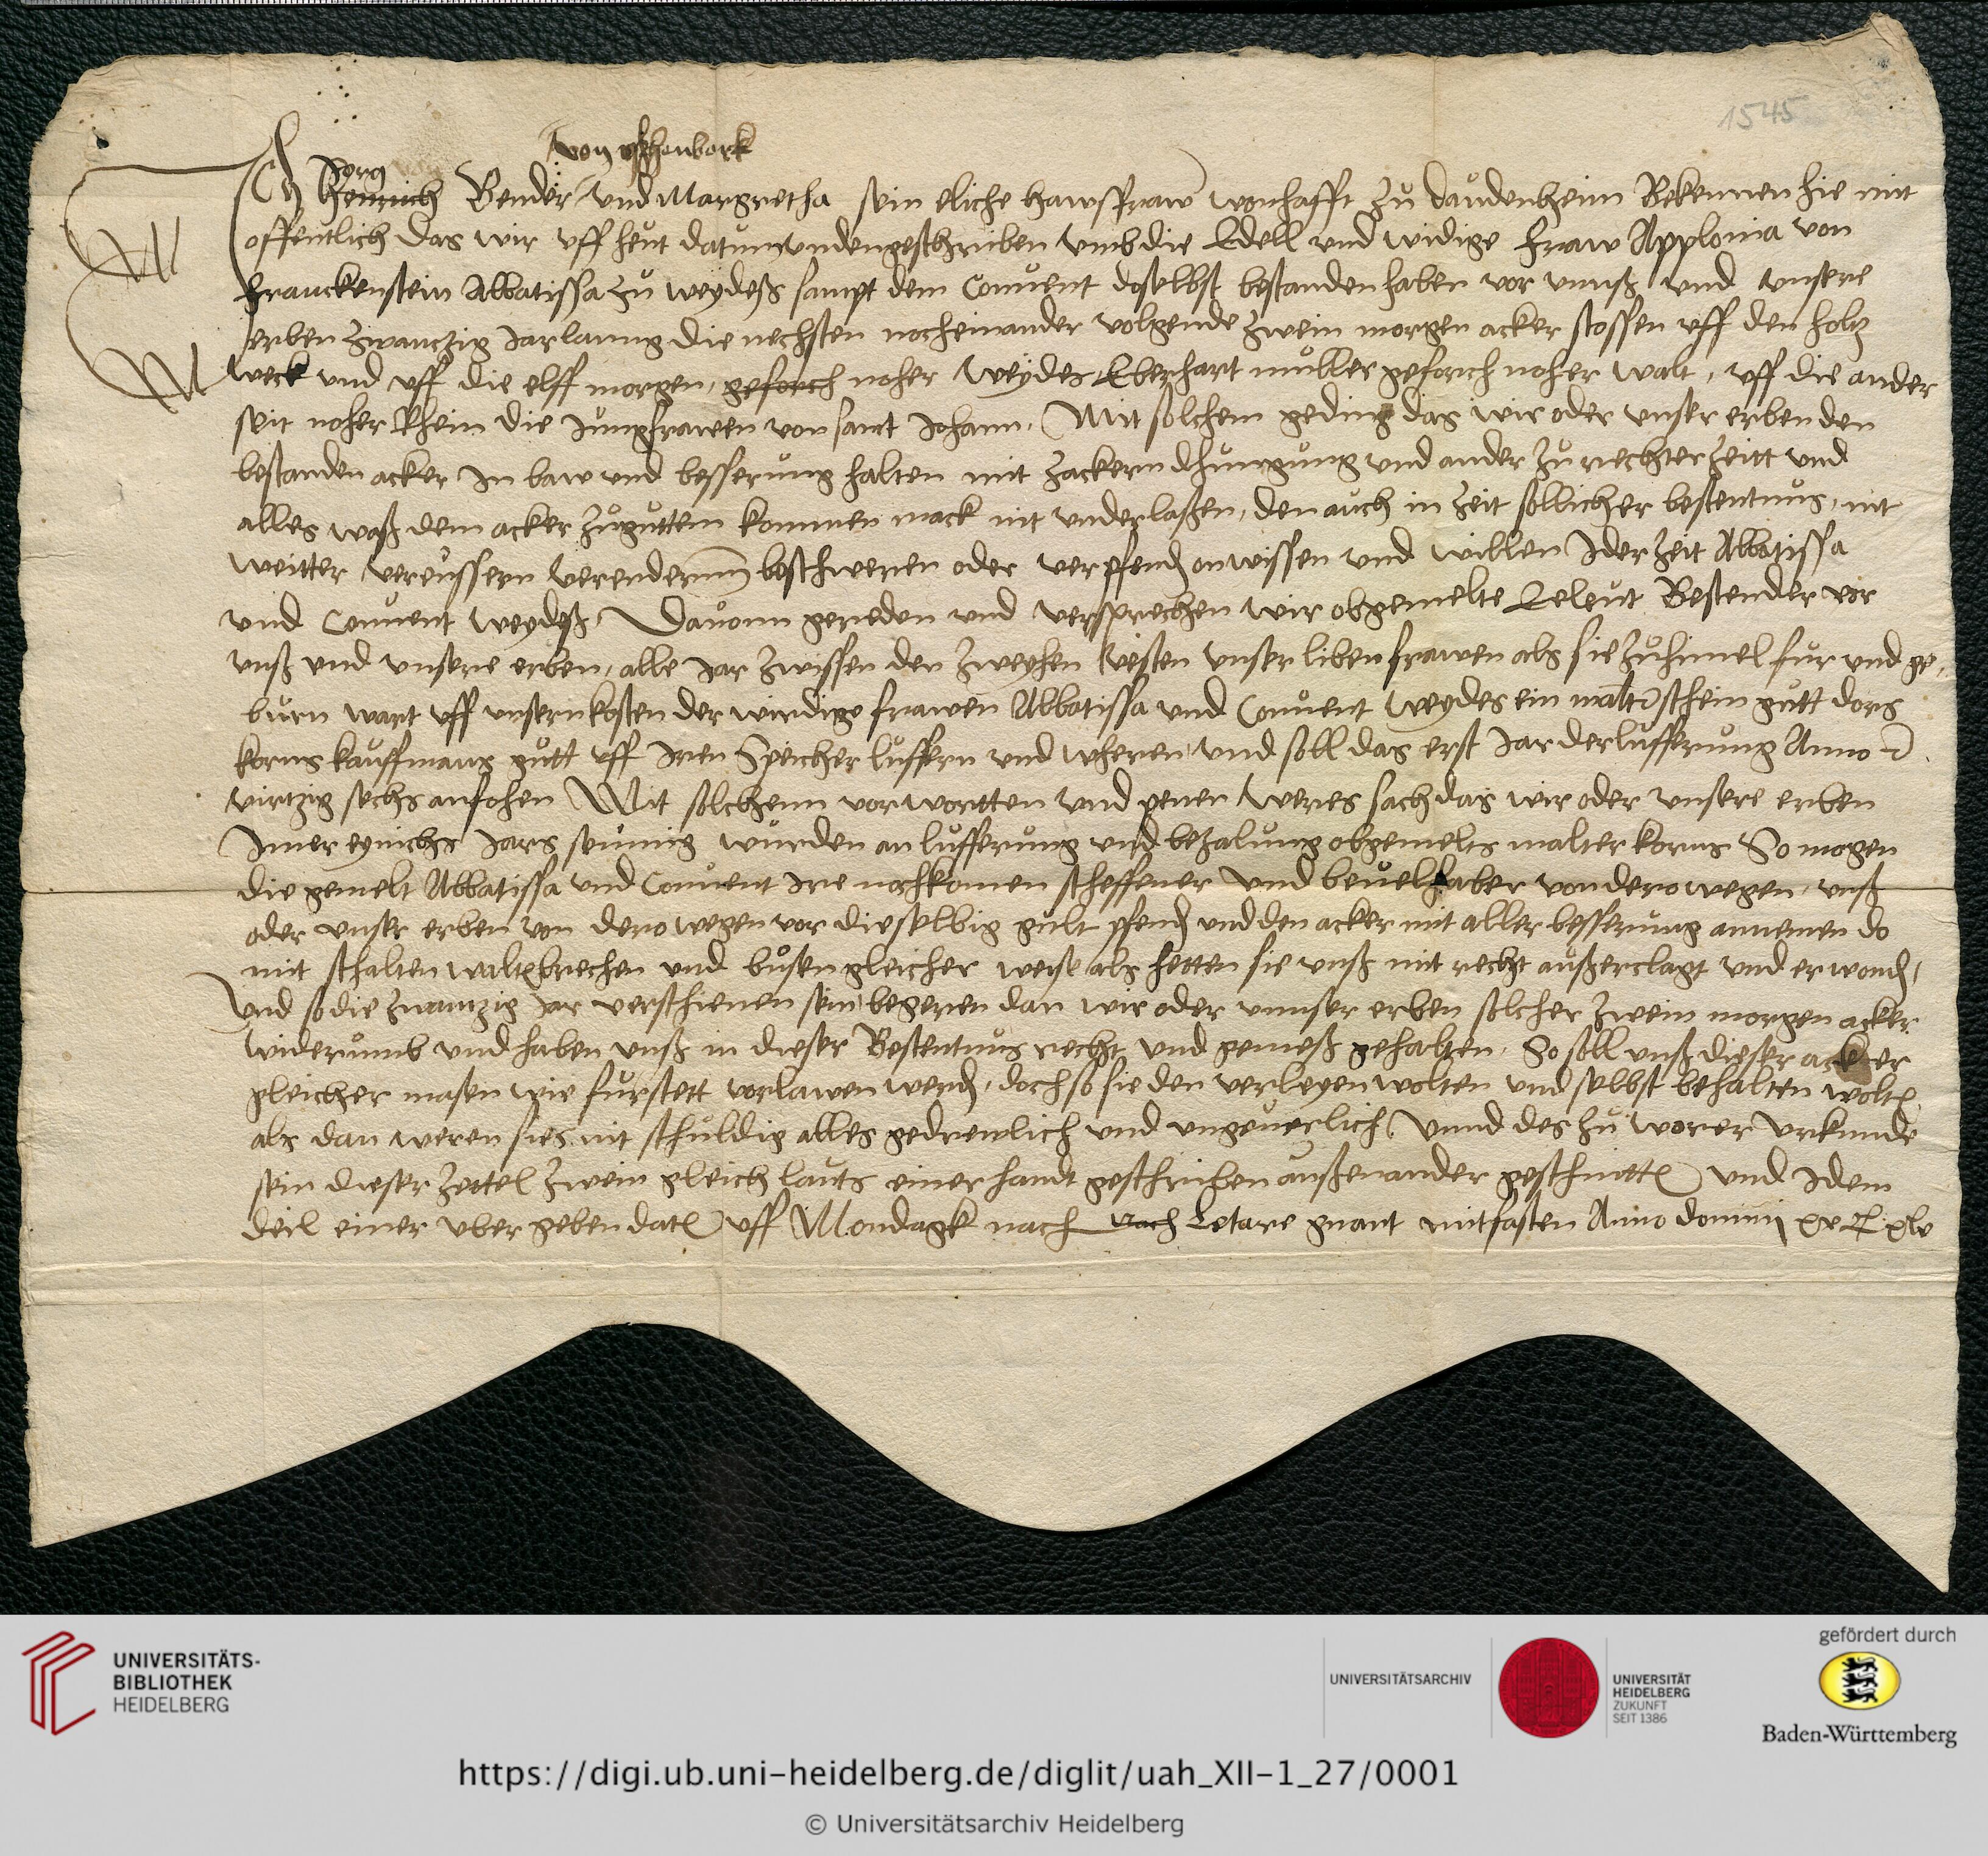 1545
von
Jorg
Ich Henrich Bender und Margretha sein eliche hawsfraw wonhafft zu daudenheim Bekennen hie mit
offentlich das wir uff heut datum undengeschriben umb die Edell und widige fraw Applonia von
franckenstein Abbatissa zu weydeß sampt dem Convent doselbst bestanden haben vor unnß und unsere
erben zwanczig Jar lanng die nechsten nocheinander volgende zwein morgen acker stossen uff den holtz
weck und uff die elff morgen, geforch noher weydes Eberhart muller geforch noher walt, uff die ander
seit noher Rhein die Jungfrawen von sant Johann. Mit solchem geding das wir oder unser erben den
bestanden acker In baw und besserung halten mit zackern dhungung und ander zu rechter zeitt und
alles waß dem acker zu guttem kommen mack nit underlaßen, den auch in zeit sollicher bestentnus, nit
weitter vereussern verendernn beschweren oder verpfend on wissen und willen Jder zeit Abbatissa
und Convent weydeß, Davonn gereden und versprechen wir obgemelte Eeleut Bestender vor
unß und unsere erben, alle Jar zwissen den zweyhen vesten unser liben frawen als sie zu himel fur und ge,
burn wart uff unsern kosten der wirdige frawen Abbatissa und Convent weydes ein malter schein gutt dors
korns kauffmans gutt uff Iren Speicher luffern und wheren und soll das erst Jar der lufferung Anno
virtzig sechs anfohen Mit solchenn vorwortten und genen weres sach das wir oder unsere erben
Inner eynichs Jars seumig wurden an lufferung und bezalung obgemelts malter korns So mogen
die gemelt Abbatissa und Convent Ire nochkomen scheffener und bevelhaber von dero wegen, unß
oder unser erben von dero wegen vor dieselbig gult pfend und den acker mit aller besserung annemen do
mit schalten walten brechen und busen gleicher weise als hetten sie unß mit recht außerclagt und erwond,
Und so die zwantzig Jar verschienen sein begeren dan wir oder unnser erben solcher zwein morgen acker
widerumb und haben unß in dieser Bestentnus recht und gemeß gehalten, So soll unß dieser acker
gleicher masen wie furstett vorlawen werd, doch so sie den verleyen wolten und selbst behalten wolt
als dan weren sies nit schuldig alles gedrewlich und ungeverlich, Unnd des zu worer Urkunde
sein dieser zettel zwein gleich lauts einer handt geschriben außenander geschnitt und Jdem
deil einer uber geben dat uff Mondagk nach nach Letare gnant mitfasten Anno domini xv C xlv
UNIVERSITÄTS-
BIBLIOTHEK
HEIDELBERG
UNIVERSITÄTSARCHIV
UNIVERSITÄT
HEIDELBERG
ZUKUNFT
SEIT 1386
gefördert durch
Baden-Württemberg
https://digi.ub.uni-heidelberg.de/diglit/uah_XII-1_27/0001
© Universitätsarchiv Heidelberg